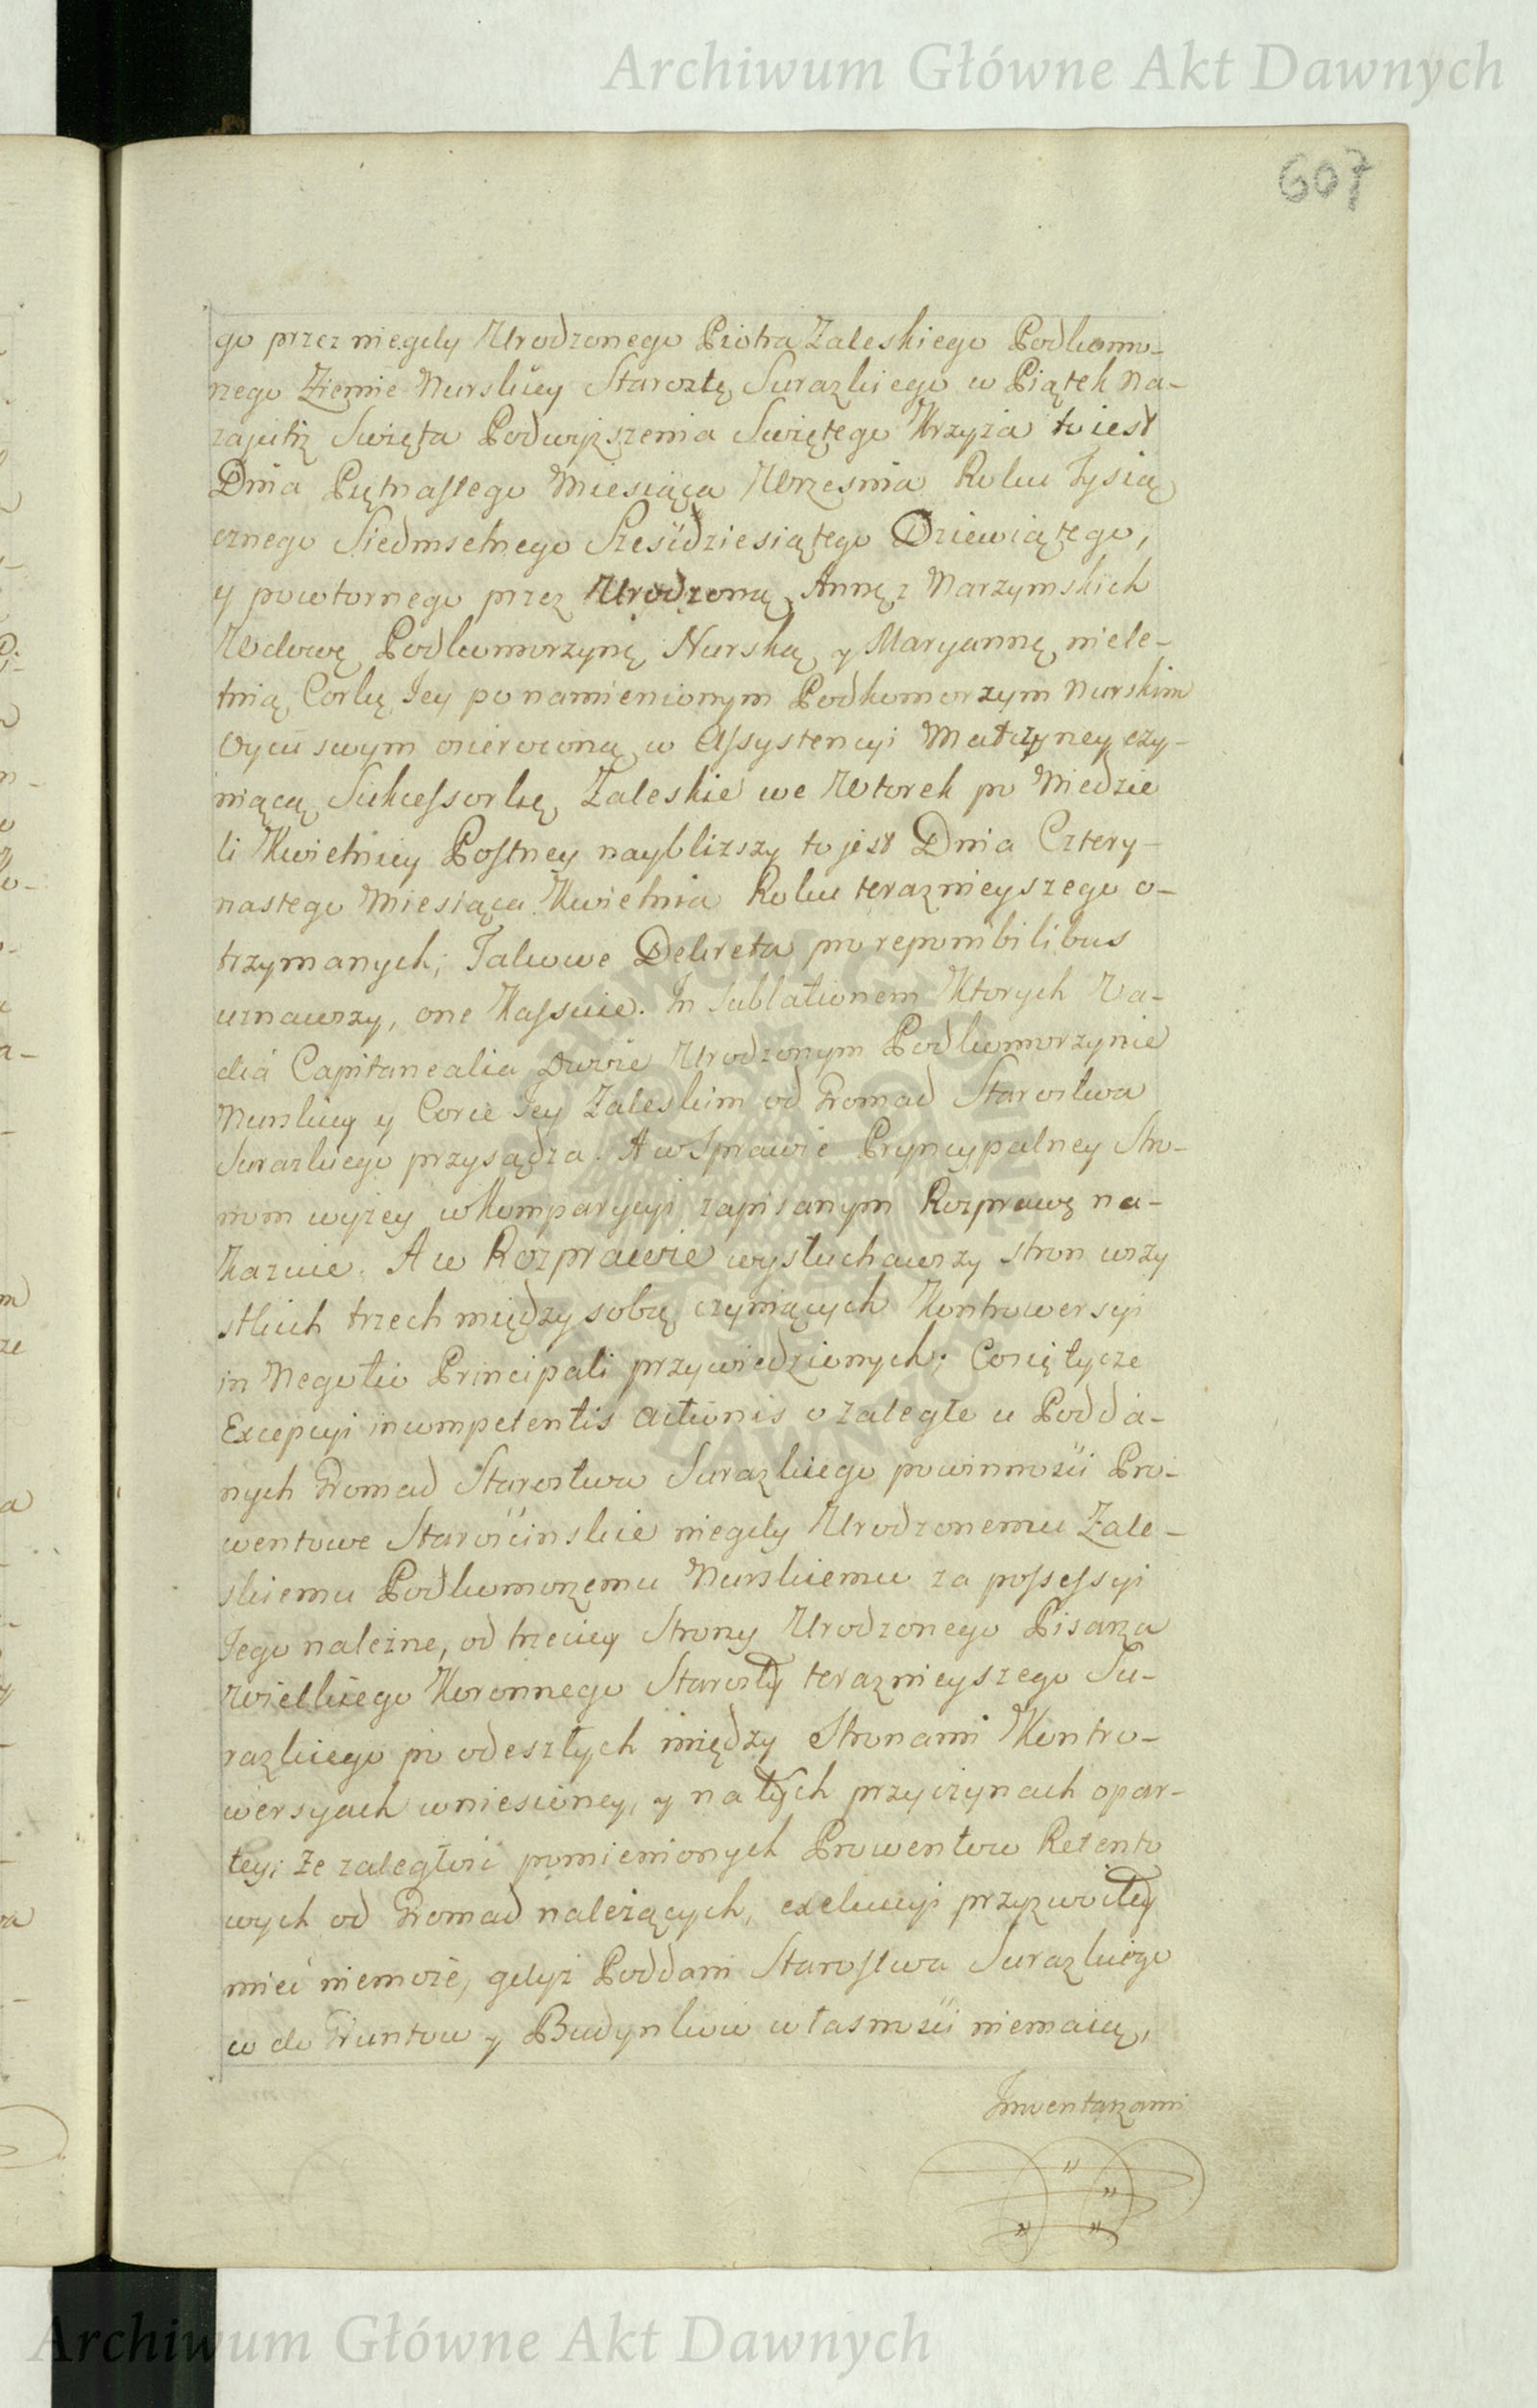 Archiwum Główne Akt Dawnych
607
go przez niegdy Urodzonego Piotra Zaleskiego Podkomo-
rzego Ziemie Nurskiey Starostę Surazkiego w Piątek na-
zajutrz Swięta Podwyższenia Swiętego Krzyża to iest
Dnia Piętnastego Miesiąca Wrzesnia Roku Tysią
cznego Siedmsetnego Sześćdziesiątego Dziewiątego,
y powtornego przez Urodzoną Annę z Marzymskich
Wdowę Podkomorzynię Nurską y Maryannę niele-
tnią Corkę Jey po namienionym Podkomorzym Nurskim
Oycu swym osierociną w Assystencyi Matczyney czy-
niącą Sukcessorkę Zaleskie we Wtorek po Niedzie
li Kwietniey Postney naybliższy to jest Dnia Cztery-
nastego Miesiąca Kwietnia Roku teraznieyszego o-
trzymanych; Takowe Dekreta pro reponibilibus
uznawszy, one Kassuie. In Sublationem Ktorych Va-
dia Capitanealia Dwoie Urodzonym Podkomorzynie
Nurskiey y Corce Jey Zaleskim od Gromad Starostwa
Surazkiego przysądza. A w Sprawie Pryncypalney Stro-
nom wyżey w Komparycyi zapisanym Rozprawę na-
kazuie. A w Rozprawie wysłuchawszy stron wszy
stkich trzech między sobą czyniących Kontrowersyi
in Negotio Principali przywiedzionych; Co się tycze
Excepcyi incompetentis actionis o zaległe u Podda-
nych Gromad Starostwa Surazkiego powinności Pro-
wentowe Starościnskie niegdy Urodzonemu Zale-
skiemu Podkomorzemu Nurskiemu za possessyi
Jego należne, od trzeciey Strony Urodzonego Pisarza
Wielkiego Koronnego Starosty teraznieyszego Su-
razkiego po odeszłych między Stronami Kontro-
wersyach wniesioney, y na tych przyczynach opar-
tey; że zaległość pomienionych Prowentow Retento
wych od Gromad należących, exekucyi przyzwoitey
mieć niemoże, gdyż Poddani Starostwa Surazkiego
co do Gruntow y Budynkow własności niemaią,
Inwentarzami
Archiwum Główne Akt Dawnych